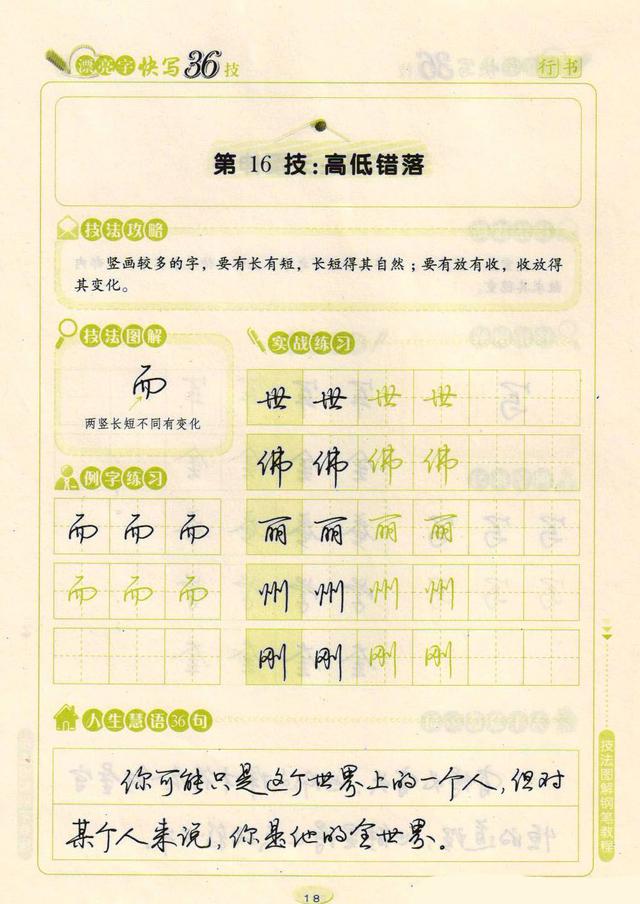 漂亮字快写36技
行书
第 16 技:高低错落
技法攻略
竖画较多的字,要有长有短,长短得其自然;要有放有收,收放得
其变化。
技法图解
而
两竖长短不同有变化
例字练习
而 而 而
而 而 而
实战练习
世 世 世 世
佛 佛 佛 佛
丽 丽 丽 丽
州 州 州 州
刚 刚 刚 刚
人生慧语36句
你可能只是这个世界上的一个人,但对
某个人来说,你是他的全世界。
技法图解钢笔教程
18